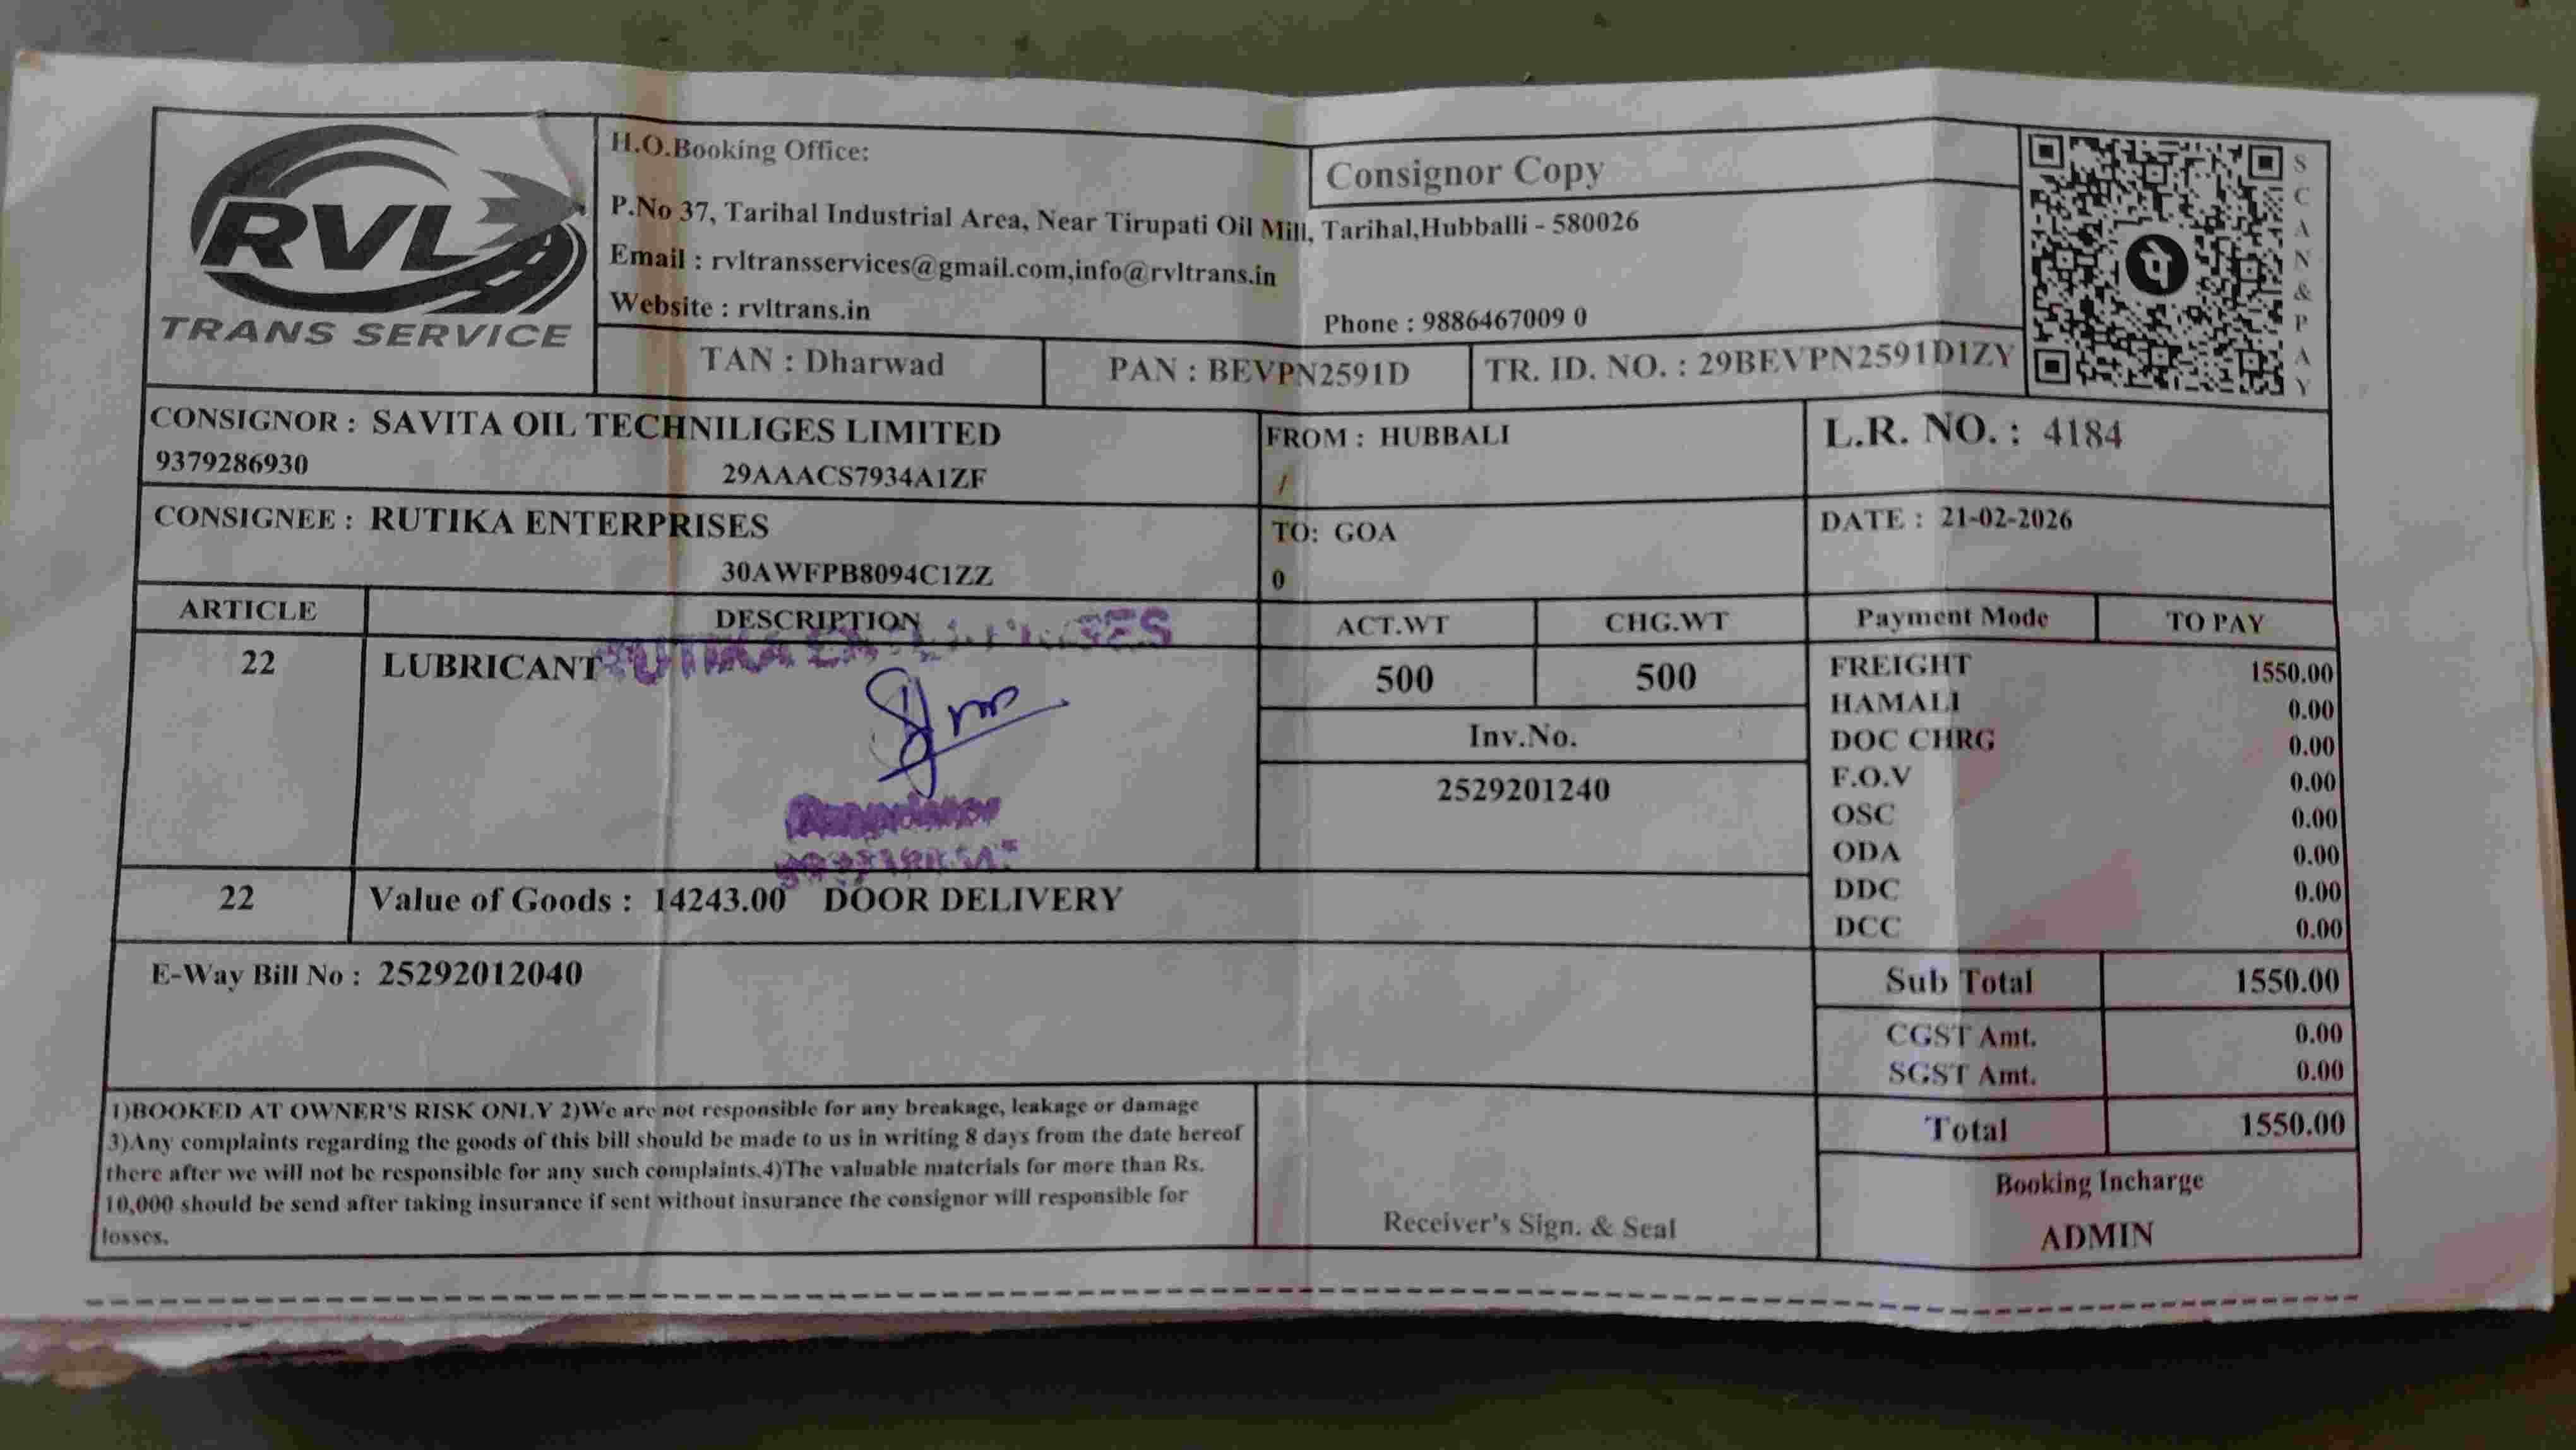 RVL
TRANS SERVICE
H.O.Booking Office:
Consignor Copy
P.No 37, Tarihal Industrial Area, Near Tirupati Oil Mill, Tarihal,Hubballi - 580026
Email : rvltransservices@gmail.com,info@rvltrans.in
Website : rvltrans.in
Phone : 9886467009 0
SCAN&PAY
पे
TAN : Dharwad
PAN : BEVPN2591D
TR. ID. NO. : 29BEVPN2591D1ZY
CONSIGNOR : SAVITA OIL TECHNILIGES LIMITED
9379286930 29AAACS7934A1ZF
FROM : HUBBALI
/
L.R. NO. : 4184
CONSIGNEE : RUTIKA ENTERPRISES
30AWFPB8094C1ZZ
TO: GOA
0
DATE : 21-02-2026
ARTICLE DESCRIPTION ACT.WT CHG.WT Payment Mode TO PAY
22 LUBRICANT 500 500
RUTIKA
Inv.No.
2529201240
FREIGHT 1550.00
HAMALI 0.00
DOC CHRG 0.00
F.O.V 0.00
OSC 0.00
ODA 0.00
DDC 0.00
DCC 0.00
22 Value of Goods : 14243.00 DOOR DELIVERY
E-Way Bill No : 25292012040
Sub Total 1550.00
CGST Amt. 0.00
SGST Amt. 0.00
Total 1550.00
1)BOOKED AT OWNER'S RISK ONLY 2)We are not responsible for any breakage, leakage or damage
3)Any complaints regarding the goods of this bill should be made to us in writing 8 days from the date hereof
there after we will not be responsible for any such complaints.4)The valuable materials for more than Rs.
10,000 should be send after taking insurance if sent without insurance the consignor will responsible for
losses.
Receiver's Sign. & Seal
Booking Incharge
ADMIN